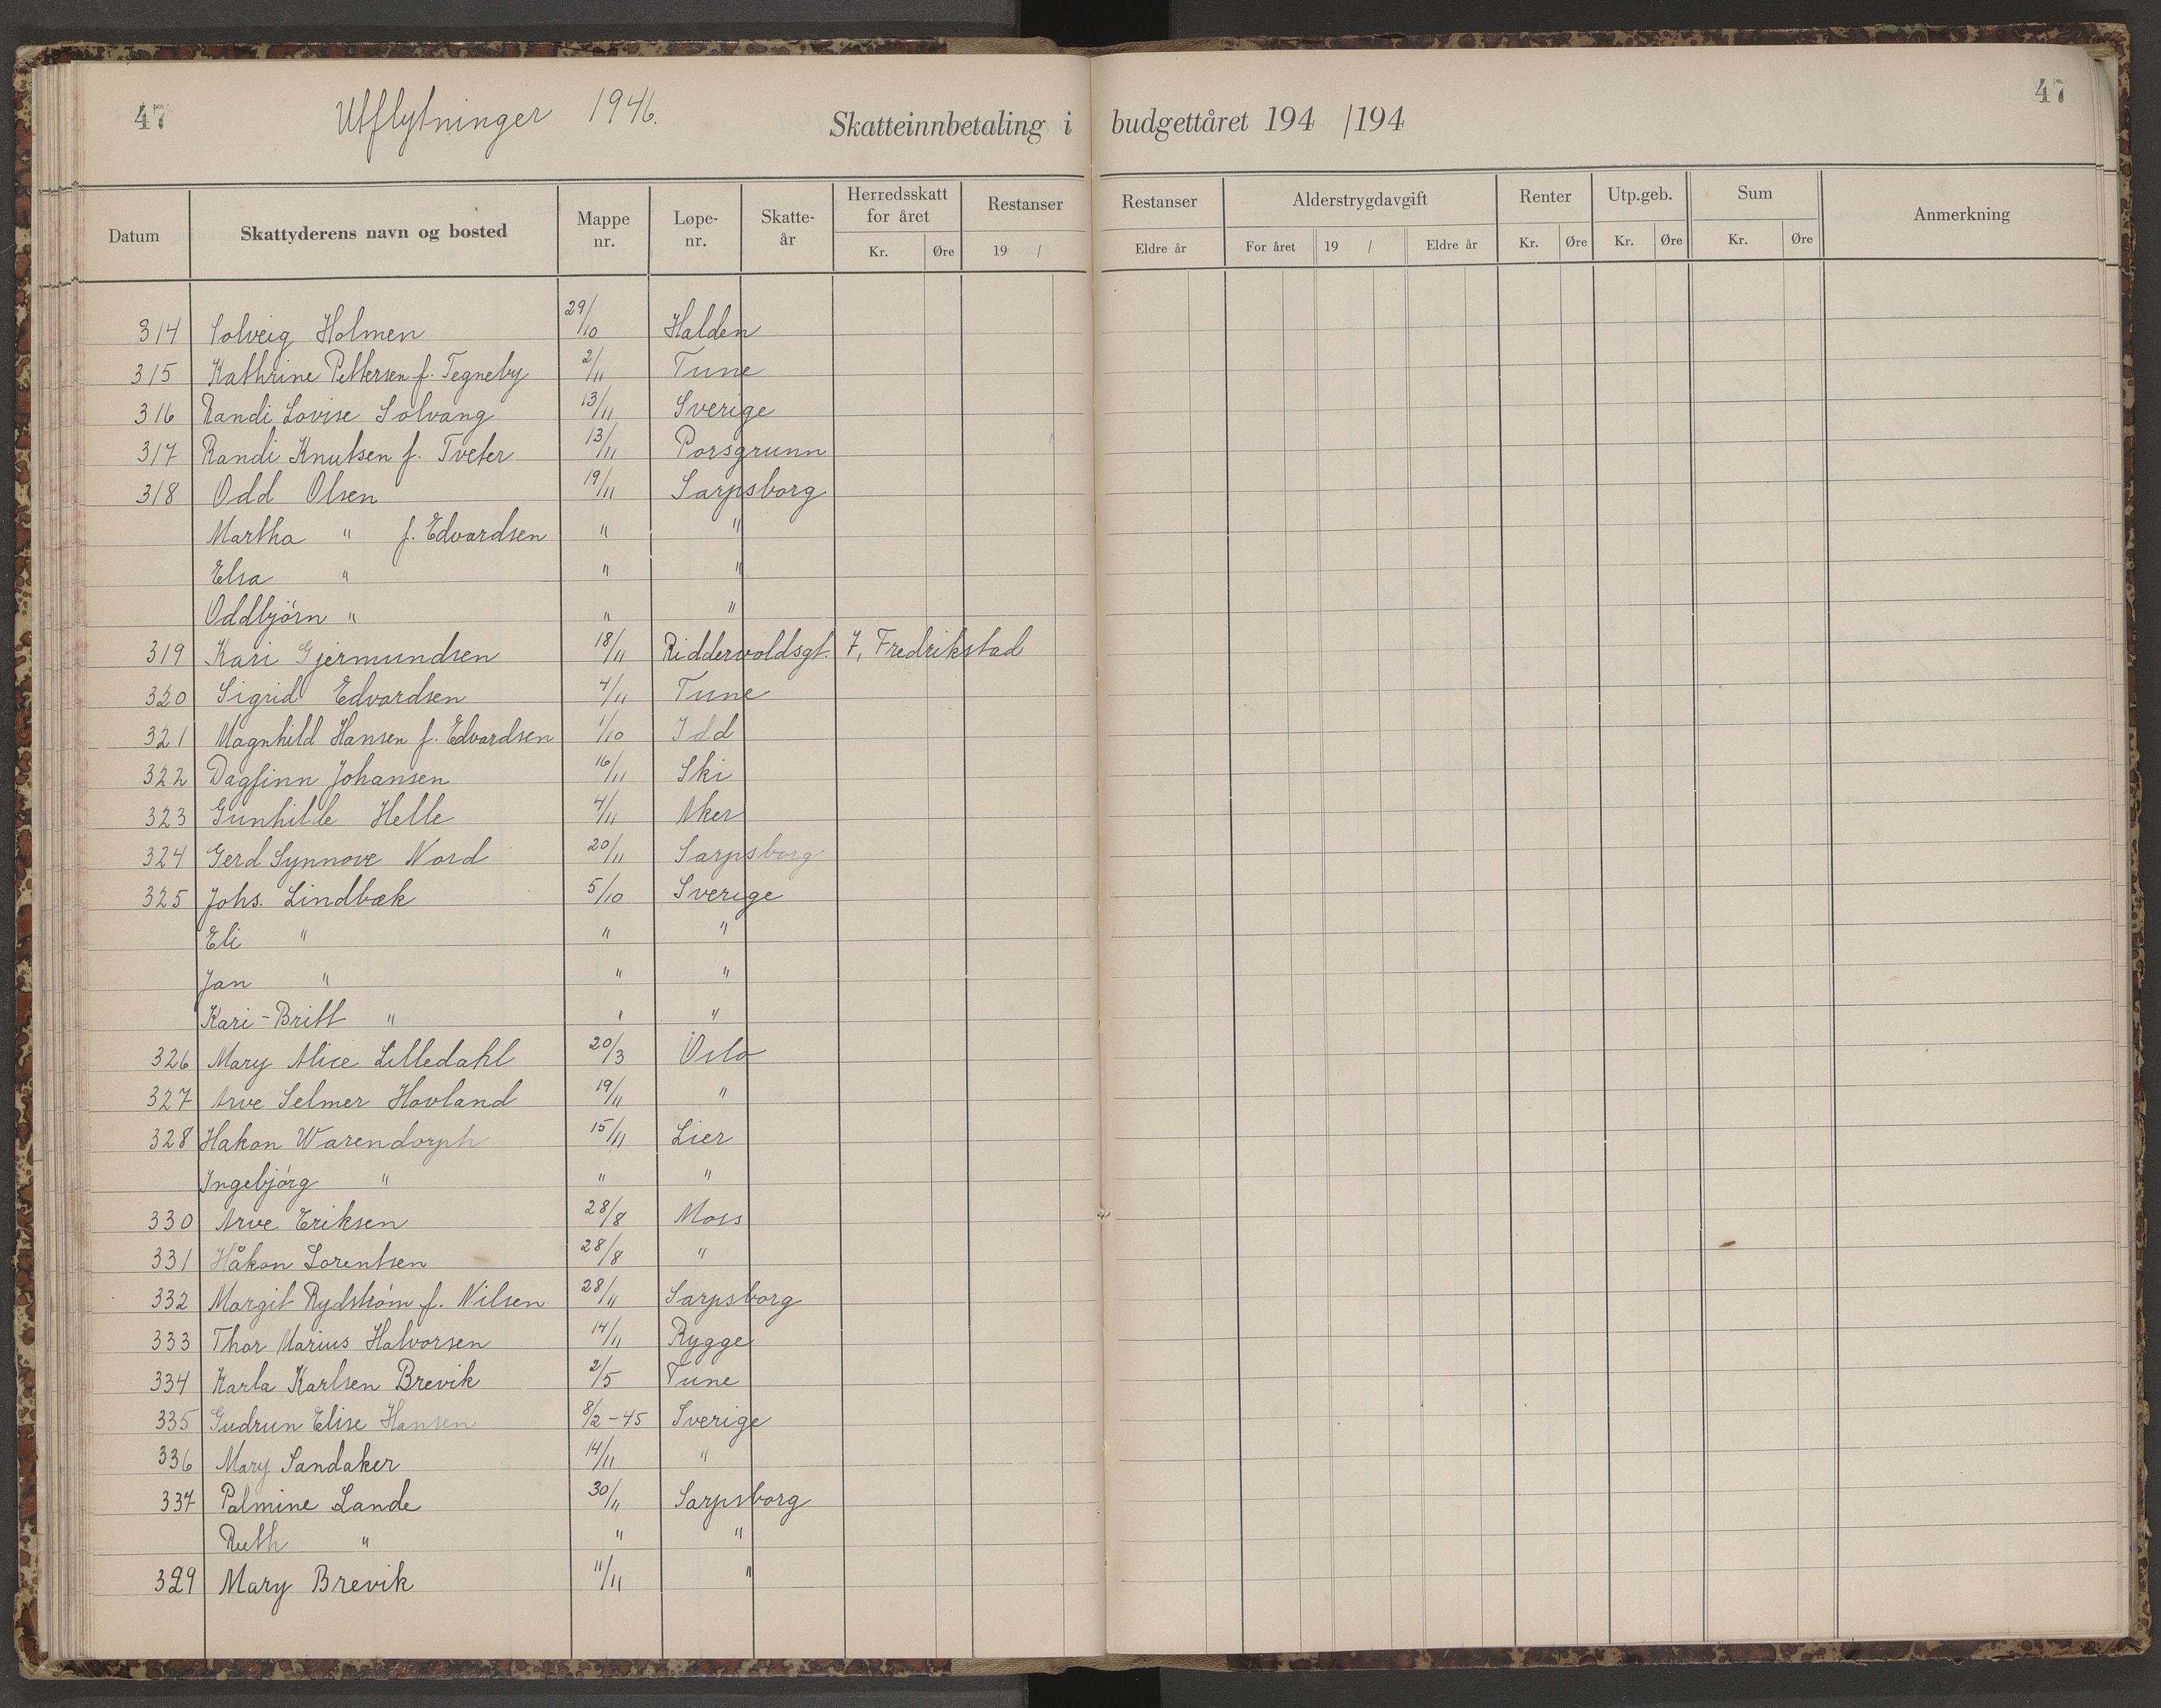 47 Utflytninger 1946. Skatteinnbetaling i budgettåret 194 /194 47
Datum Skattyderens navn og bosted Mappe nr. Løpe- nr. Skatte- år Herredsskatt for året Kr. Øre Restanser 19 / Restanser Eldre år Alderstrygdavgift For året 19 / Eldre år Renter Kr. Øre Utp.geb. Kr. Øre Sum Kr. Øre Anmerkning
314 Solveig Holmen 29/10 Halden
315 Kathrine Pettersen f. Tegneby 2/11 Tune
316 Randi Lovise Solvang 13/11 Sverige
317 Randi Knutsen f. Tveter 13/11 Porsgrunn
318 Odd Olsen 19/11 Sarpsborg
Martha " f. Edvardsen " "
Elsa " " "
Oddbjörn " " "
319 Kari Gjermundsen 18/11 Riddervoldsgt. 7, Fredrikstad
320 Sigrid Edvardsen 4/11 Tune
321 Magnhild Hansen f. Edvardsen 1/10 Idd
322 Dagfinn Johansen 16/11 Ski
323 Gunhilde Helle 4/11 Aker
324 Gerd Synnove Nord 20/11 Sarpsborg
325 Johs. Lindbæk 5/10 Sverige
Eli " " "
Jan " " "
Kari-Britt " " "
326 Mary Alice Lilledahl 20/3 Oslo
327 Arve Selmer Hovland 19/11 "
328 Hakon Warendorph 15/11 Lier
Ingebjørg " " "
330 Arve Eriksen 28/8 Moss
331 Håkon Lorentsen 28/8 "
332 Margit Rydstrøm f. Nilsen 28/11 Sarpsborg
333 Thor Marius Halvorsen 14/11 Rygge
334 Karla Karlsen Brevik 2/5 Tune
335 Gudrun Elise Hansen 8/2-45 Sverige
336 Mary Sandaker 14/11 "
337 Palmine Lande 30/11 Sarpsborg
Ruth " " "
329 Mary Brevik 11/11 "